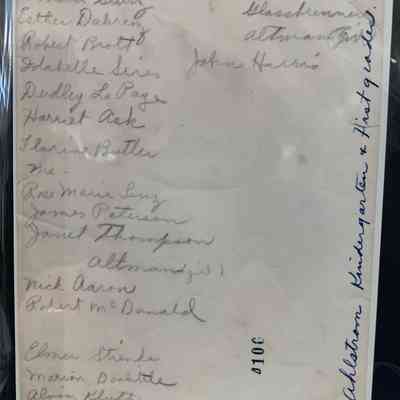 Esther Dahren
Robert Brott
Isabelle Sires
Dudley LaPage
Harriet Ask
Florine Butler
me.
Rose Marie Senz
James Paterson
Janet Thompson
Altman (girl)
Nick Aaron
Robert McDonald
Elmer
Marion Doulette
Alvin
Glassbrenner
Altman
John Harris
Ahlstrom Kindergarten & First grades.
4106